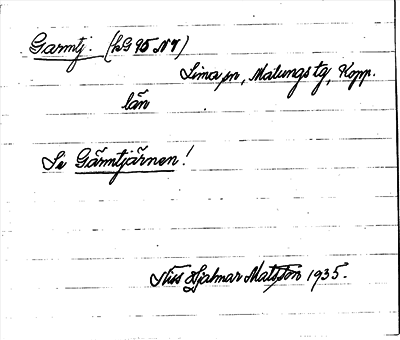 Garmtj. (LG 95 NV)
Lima sn, Malungs tg, Kopp.
län
Se Gärmtjärnen!
Nils Hjalmar Matsson 1935.